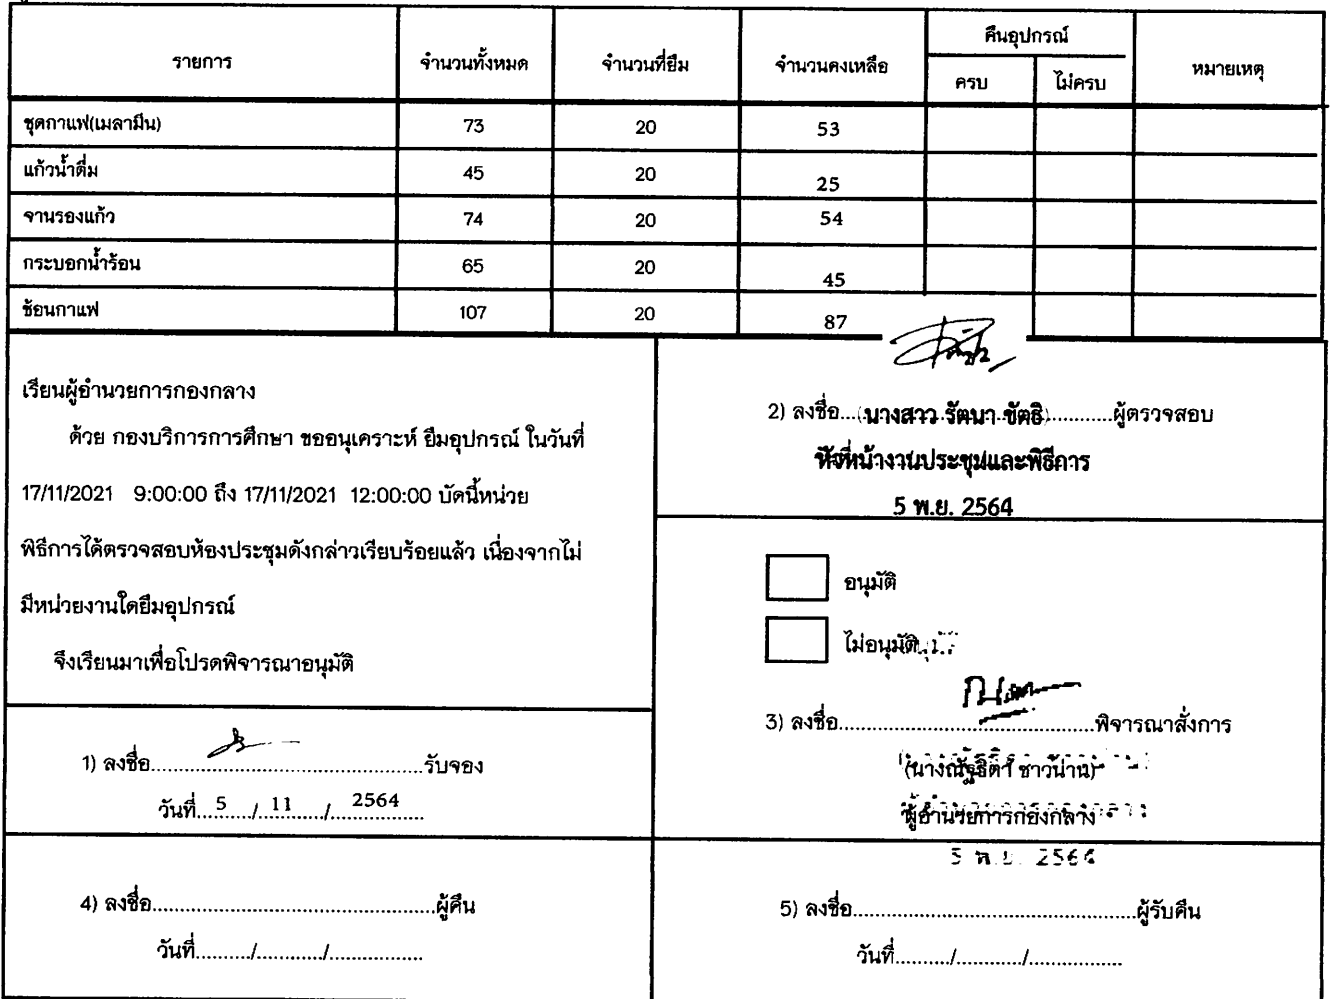 รายการ จำนวนทั้งหมด จำนวนที่ยืม จำนวนคงเหลือ คืนอุปกรณ์ หมายเหตุ
ครบ ไม่ครบ
ชุดกาแฟ(เมลามีน) 73 20 53
แก้วน้ำดื่ม 45 20 25
จานรองแก้ว 74 20 54
กระบอกน้ำร้อน 65 20 45
ช้อนกาแฟ 107 20 87
เรียนผู้อำนวยการกองกลาง
ด้วย กองบริการการศึกษา ขออนุเคราะห์ ยืมอุปกรณ์ ในวันที่
17/11/2021 9:00:00 ถึง 17/11/2021 12:00:00 บัดนี้หน่วย
พิธีการได้ตรวจสอบห้องประชุมดังกล่าวเรียบร้อยแล้ว เนื่องจากไม่
มีหน่วยงานใดยืมอุปกรณ์
จึงเรียนมาเพื่อโปรดพิจารณาอนุมัติ
2) ลงชื่อ...(นางสาว รัตนา ขัตธิ)............ผู้ตรวจสอบ
หัวหน้างานประชุมและพิธีการ
5 พ.ย. 2564
อนุมัติ
ไม่อนุมัติ
3) ลงชื่อ..........................................พิจารณาสั่งการ
(นางณัฐธิดา ชาวน่าน)
ผู้อำนวยการกองกลาง
5 พ.ย. 2564
1) ลงชื่อ.............................................รับจอง
วันที่...5..../..11...../....2564....
4) ลงชื่อ...............................................ผู้คืน
วันที่........../............/................
5) ลงชื่อ...............................................ผู้รับคืน
วันที่........../............/................